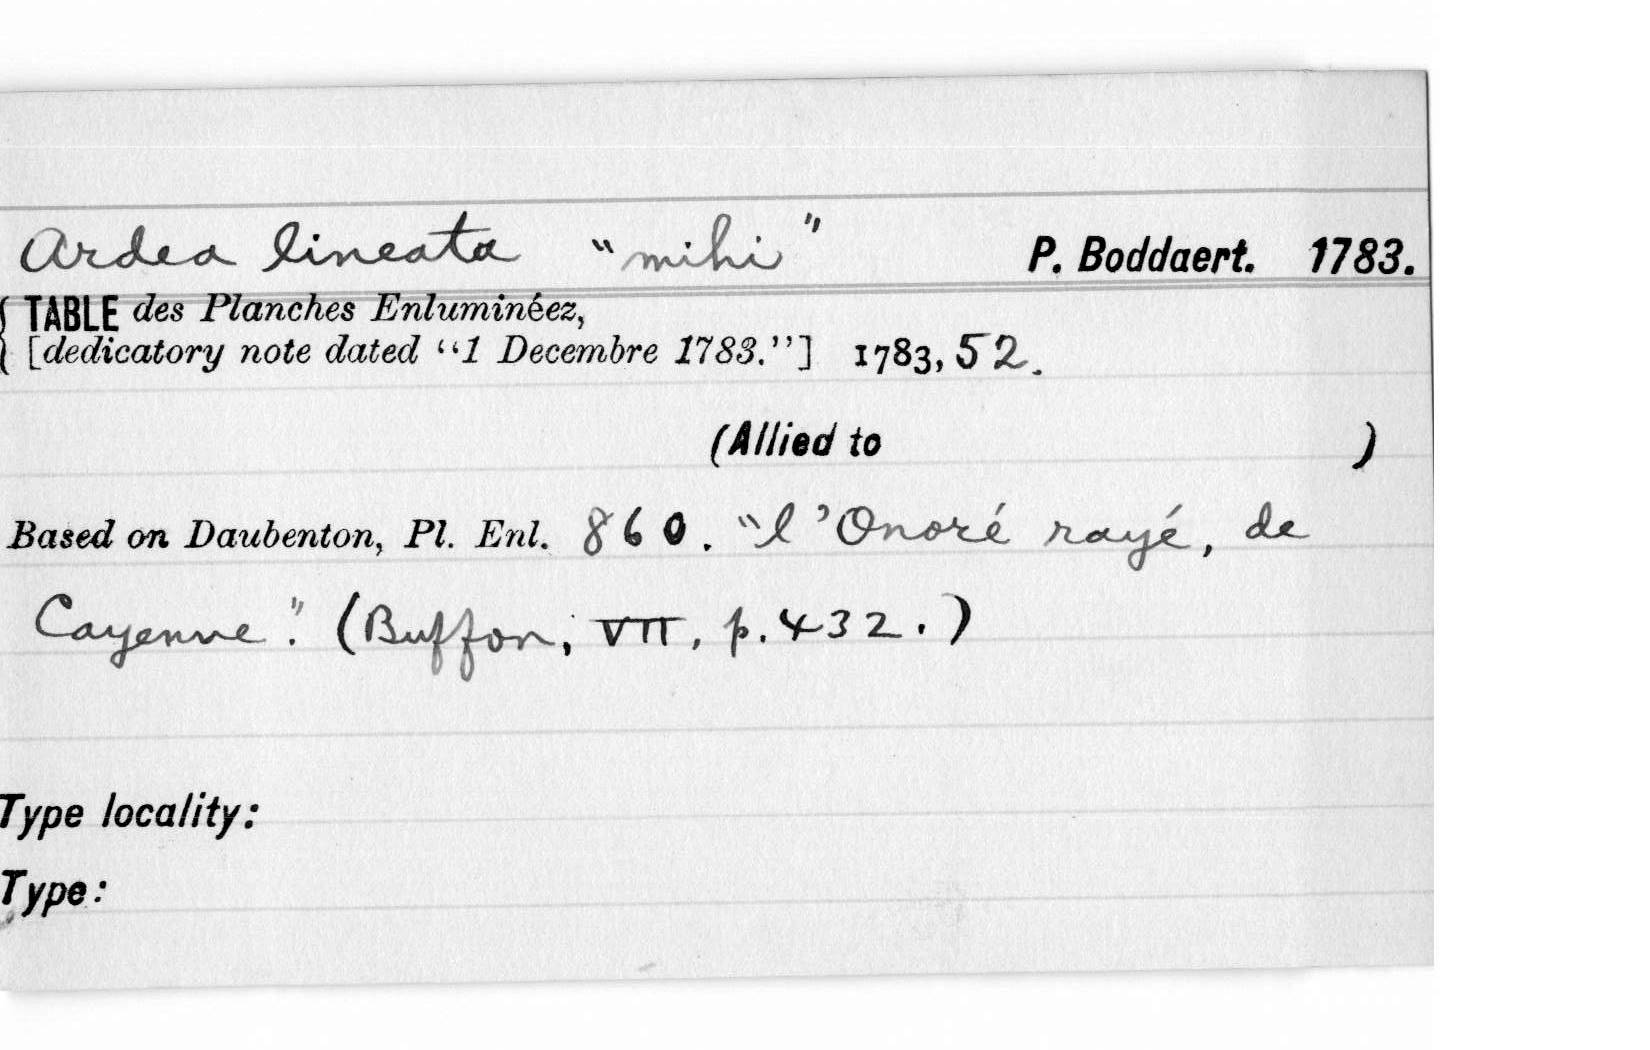 Ardea lineata "mihi" P. Boddaert. 1783.
TABLE des Planches Enluminéez,
[dedicatory note dated "1 Decembre 1783."] 1783, 52.
(Allied to )
Based on Daubenton, Pl. Enl. 860. "l'Onoré rayé, de
Cayenne". (Buffon, VII, p. 432.)
Type locality:
Type: